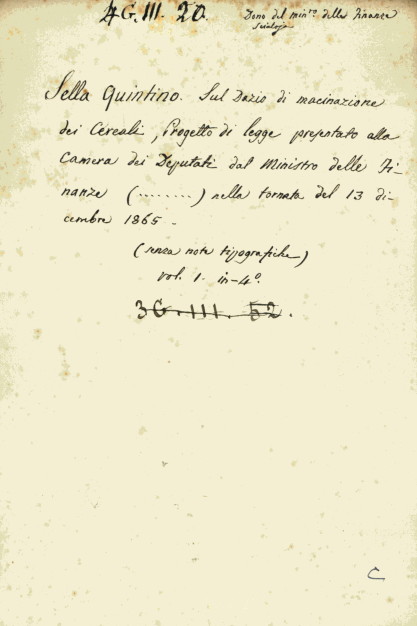 4G. III. 20.
Dono del min.ro delle Finanze
Scialoja
Sella Quintino. Sul Dazio di macinazione
dei Cereali, Progetto di legge presentato alla
Camera dei Deputati dal Ministro delle Fi-
nanze (.........) nella tornata del 13 di-
cembre 1865.
(senza note tipografiche)
vol. 1. in-4°.
3G. III. 52.
C